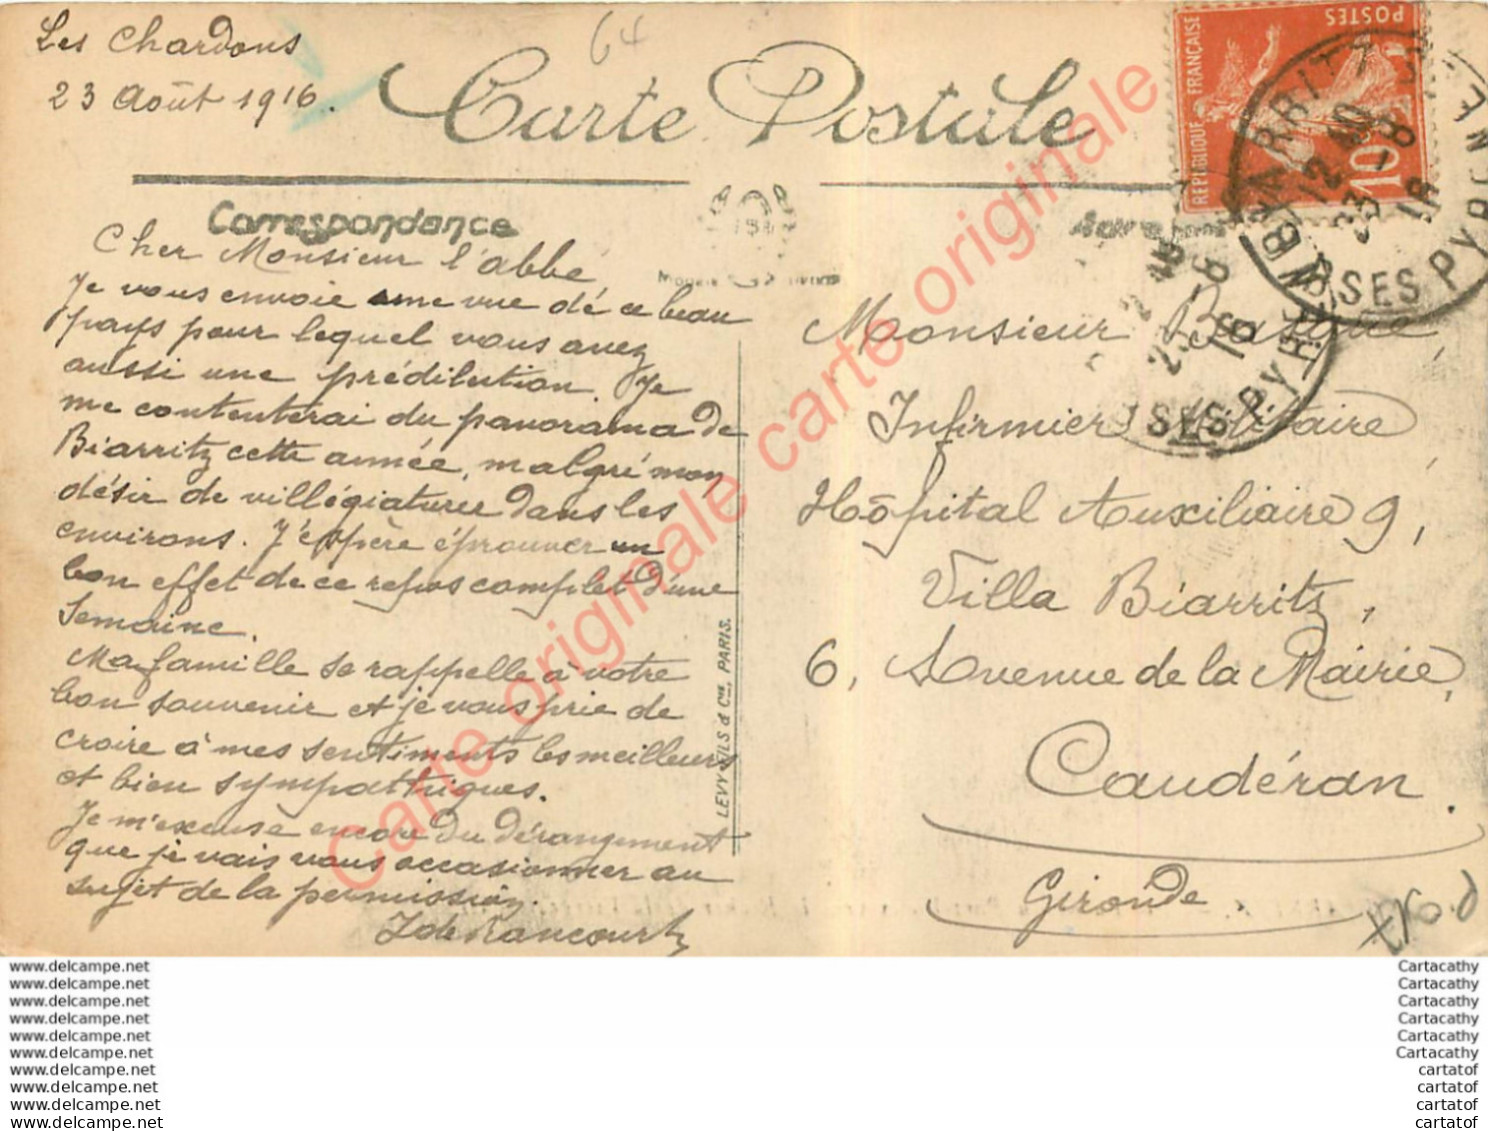 Les Chardons
23 Août 1916.
64
Carte Postale
Correspondance
Cher Monsieur l'abbé,
Je vous envoie une vue de ce beau
pays pour lequel vous avez
aussi une prédilection. Je
me contenterai du panorama de
Biarritz cette année, malgré mon
désir de villégiaturer dans les
environs. J'espère éprouver un
bon effet de ce repos complet d'une
Semaine.
Ma famille se rappelle à votre
bon souvenir et je vous prie de
croire à mes sentiments les meilleurs
et bien sympathiques.
Je m'excuse encore du dérangement
que je vais vous occasionner au
sujet de la permission.
LEVY FILS & Cie, PARIS.
POSTES
REPUBLIQUE FRANÇAISE
10
BIARRITZ
BSES PYRENEES
12 40
23 -8
16
Monsieur
Infirmier Militaire,
Hôpital Auxiliaire 9,
Villa Biarritz,
6, Avenue de la Mairie,
Caudéran.
Gironde.
Carte originale carte originale
Carte originale carte originale
www.delcampe.net
www.delcampe.net
www.delcampe.net
www.delcampe.net
www.delcampe.net
www.delcampe.net
www.delcampe.net
www.delcampe.net
www.delcampe.net
www.delcampe.net
Cartacathy
Cartacathy
Cartacathy
Cartacathy
Cartacathy
Cartacathy
cartatof
cartatof
cartatof
cartatof